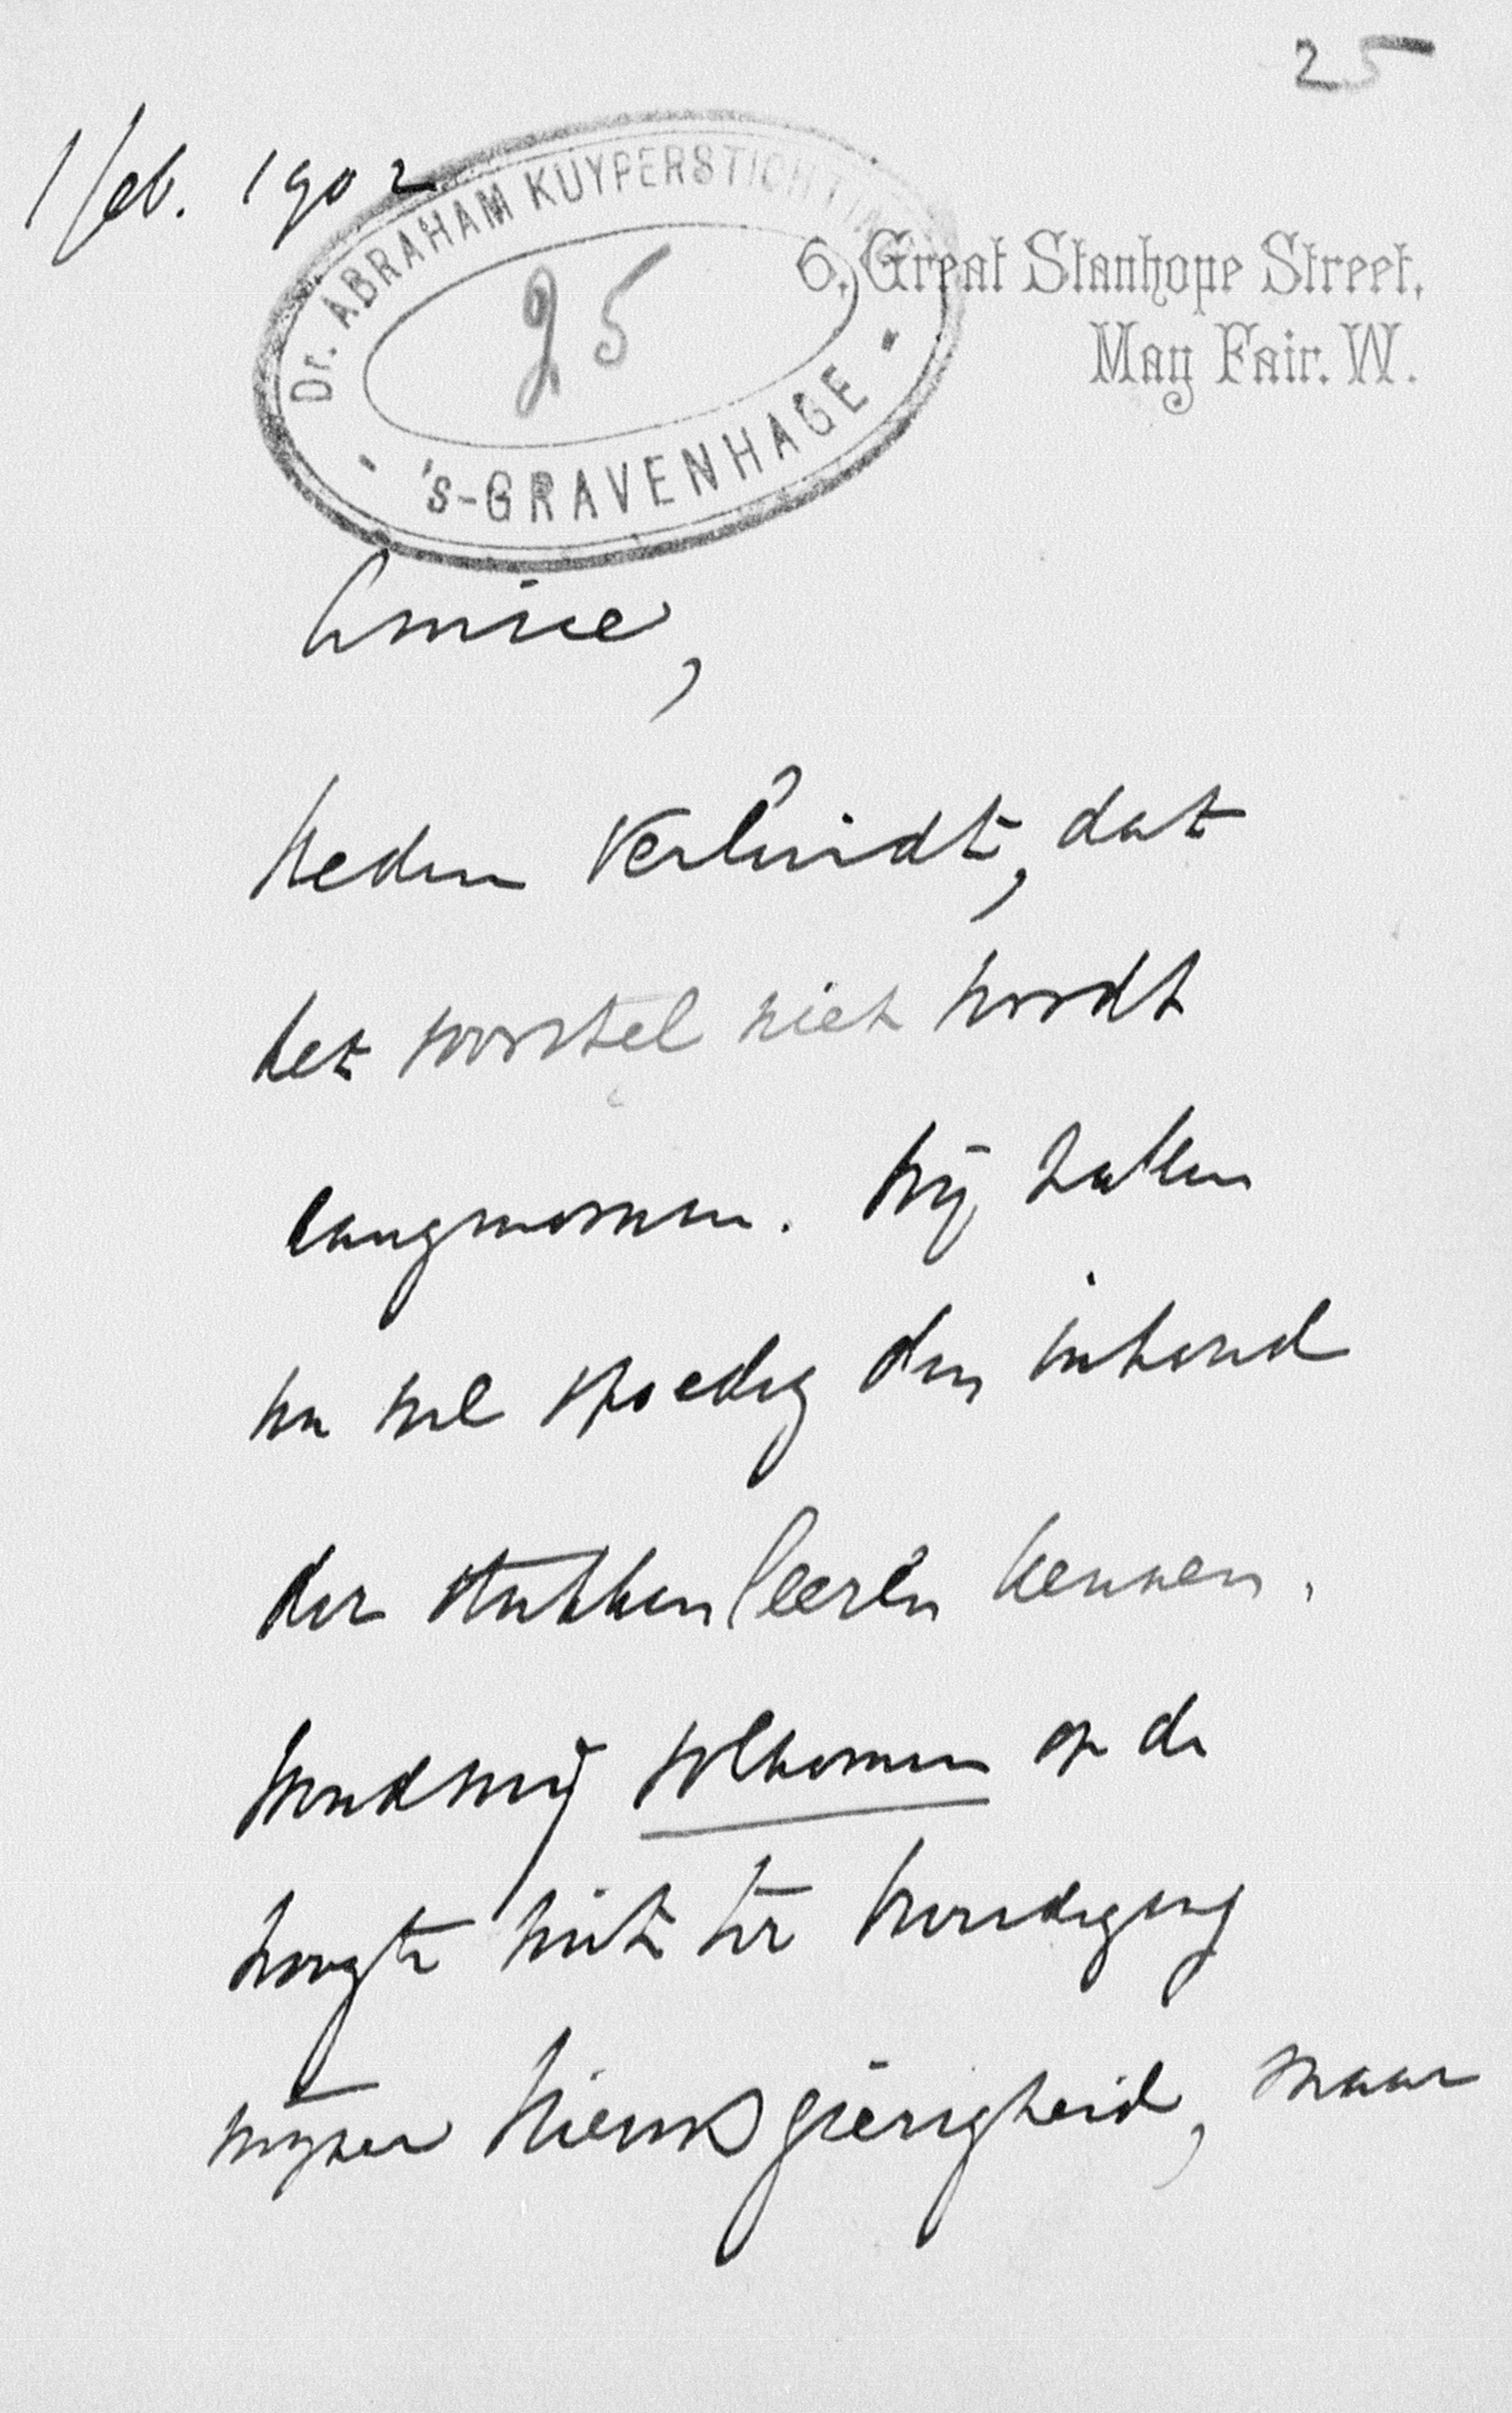 25
1 feb. 1902
Dr. ABRAHAM KUYPERSTICHTING
25
'S-GRAVENHAGE
6, Great Stanhope Street,
May Fair. W.
Amice,
Heden verluidt, dat
het voorstel niet wordt
aangenomen. Wij zullen
nu wel spoedig den inhoud
der stukken leeren kennen.
Houd mij volkomen op de
hoogte niet ter bevrediging
mijner nieuwsgierigheid, maar